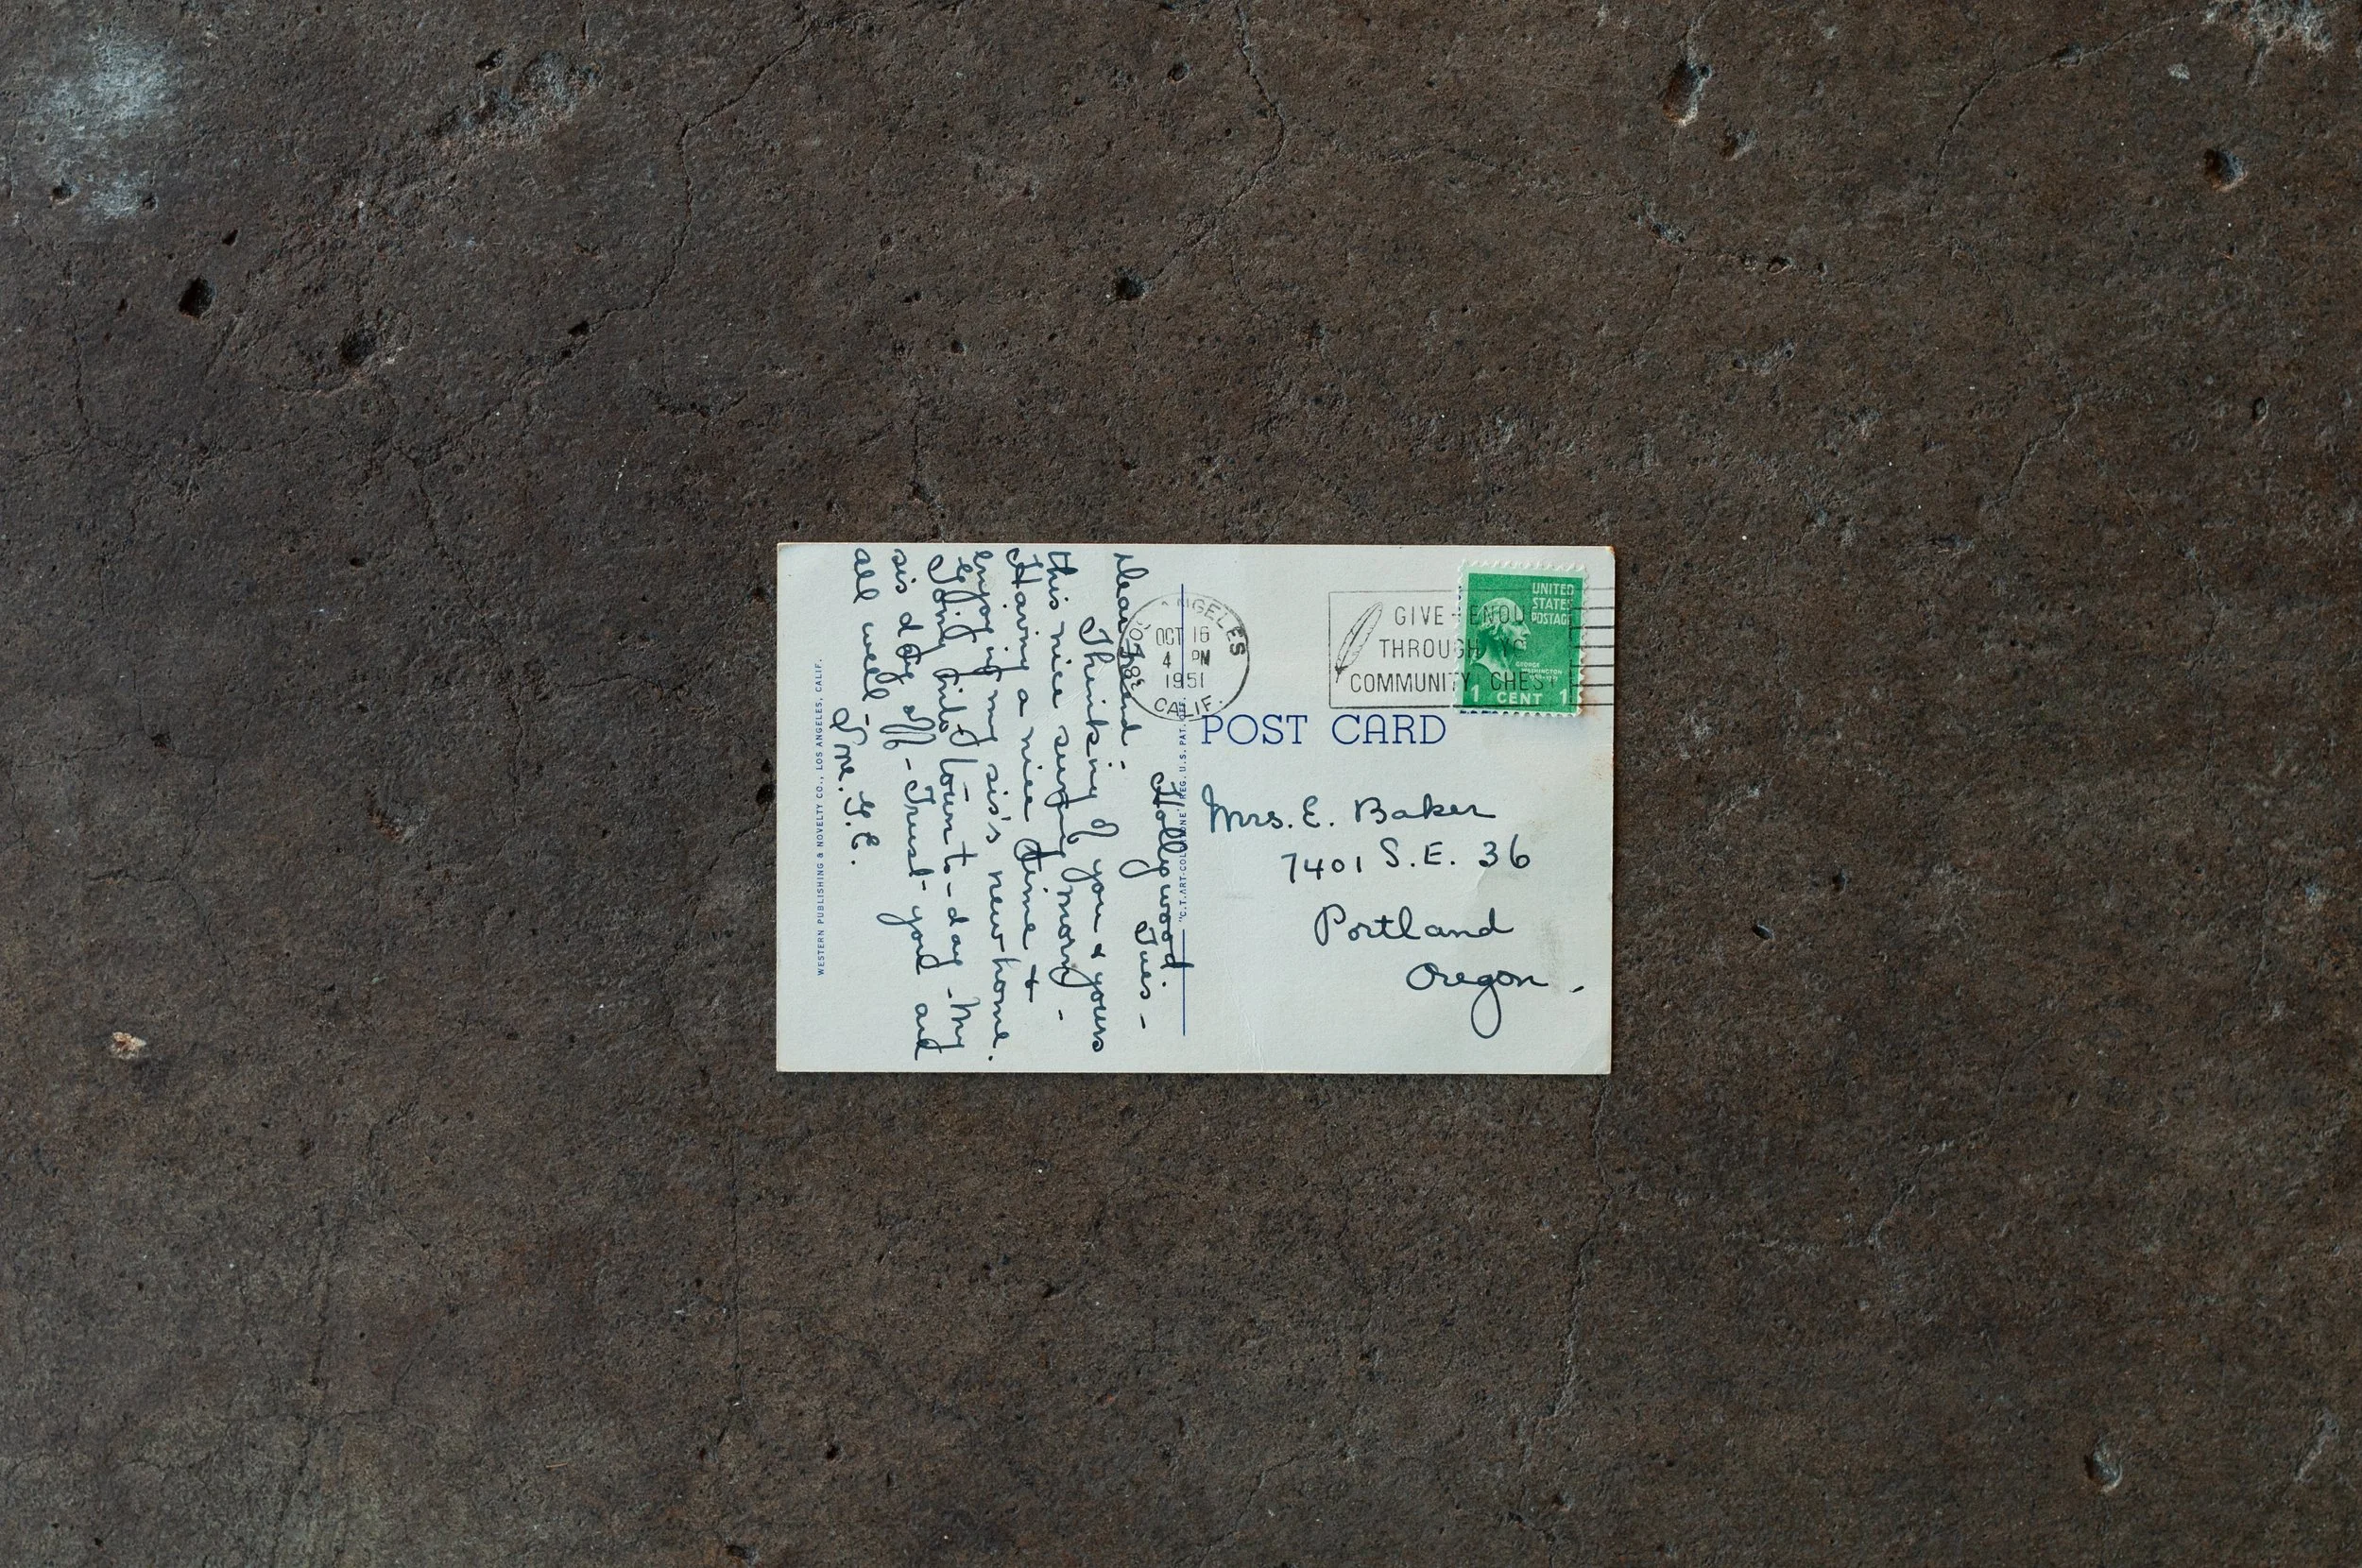 Hollywood.
Tues -
Dear Friend -
Thinking of you & yours
this nice sunny morn, -
Having a nice time &
enjoying my sis's new home.
Going into town to-day - My
sis day off - Trust you are
all well -
Love. G.E.
WESTERN PUBLISHING & NOVELTY CO., LOS ANGELES, CALIF.
"C.T. ART-COLORTONE" REG. U.S. PAT.
ANGELES
OCT 16
4 PM
1951
CALIF.
GIVE-ENOU
THROUGH YO
COMMUNITY CHEST
UNITED
STATES
POSTAGE
GEORGE
WASHINGTON
1 CENT 1
POST CARD
Mrs. E. Baker
7401 S.E. 36
Portland
Oregon.